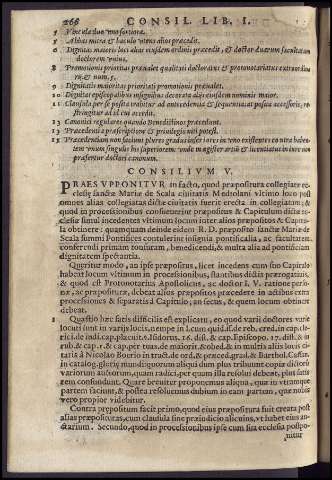 266 CONSIL. LIB. I.
5 Vincula duo
6 Abbas mitra & baculo utens alios præcedit.
7 Dignitas maioris loci alias eiusdem ordinis præcedit, & doctor duarum facultatum
doctorem unius.
8 Promotionis prioritas prævalet qualitati doctoratus & protonotariatus extraordina
rii. & num. 5.
9 Dignitatis maioritas prioritati promotionis prævalet.
10 Dignitas episcopalibus insignibus decorata alijs eiusdem nominis maior.
11 Clausula per se posita trahitur ad antecedentia & sequentia: at posita accessorie, re-
stringitur ad id cui accedit.
12 Canonici regulares quando Benedictinos præcedant.
13 Præcedentia præscriptione & privilegio uti potest.
15 Præcedentiam non faciunt plures gradus inferiores in uno existentes contra habe
tem unum singulis his superiorem. unde magister artiū & licentiatus in iure non
præfertur doctori canonum.
CONSILIVM V.
PRAESVPPONITVR in facto, quod præpositura collegiatæ ec-
clesię sanctæ Mariæ de Scala civitatis Mediolani ultimo loco post
omnes alias collegiatas dictæ civitatis fuerit erecta in collegiatam; &
quod in processionibus consueverint præpositus & Capitulum dictæ ec-
clesiæ simul incedentes ultimum locum inter alios præpositos & Capitu-
la obtinere: quamquam deinde eidem R. D. præposito sanctæ Mariæ de
Scala summi Pontifices contulerint insignia pontificalia, ac facultatem
conferendi primam tonsuram, benedicendi, & multa alia ad pontificatū
dignitatem spectantia.
Quæritur modo, an ipse præpositus, licet incedens cum suo Capitulo
habeat locum ultimum in processionibus, stantibus dictis prærogativis,
& quod est Protonotarius Apostolicus, ac doctor I. V. ratione perso-
næ, ac præpositura, debeat alios præpositos præcedere in actibus extra
processiones & separatis à Capitulo, an secus, & quem locum obtinere
debeat.
1 Quæstio hæc satis difficilis est explicatu, eo quod varii doctores varie
locuti sunt in varijs locis, nempe in l. cum quid. ff. de reb. cred. in cap. cle-
rici. de iudi. cap. placuit. s. Isidorus. 16. dist. & cap. Episcopo. 17. dist. & in
rub. & cap. 1. & cap. per tuas. de maiorit. & obed. & in multis alijs locis ci-
tatis à Nicolao Boerio in tract. de ord. & præced. grad. & Barthol. Cassan.
in catalog. gloriæ mundi: quorum aliqui dum plus tribuunt copiæ dictorū
variorum auctorum, quàm radici, per quam illa resolvi debeat, plus satis
rem confundunt. Quare breviter proponemus aliqua, quæ in utramque
partem faciunt, & postea resolvemus dubium in eam partem, quæ nobis
vero propior videbitur.
Contra præpositum facit primo, quod eius præpositura fuit creata post
alias præposituras, cum clausula sine præiudicio alicuius, vt habet eius an-
ctarium. Secundo, quod in processionibus ipse cum sua ecclesia postpo-
nitur